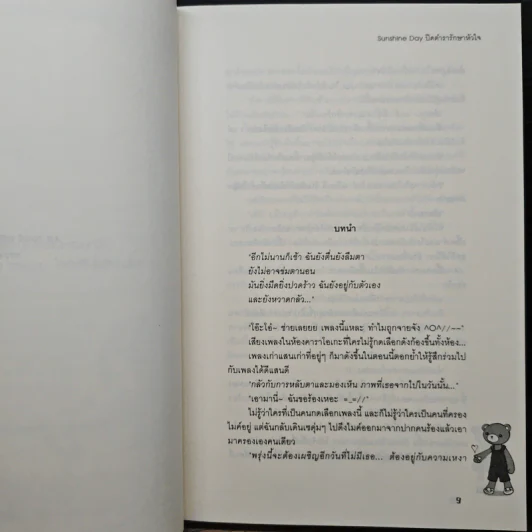 Sunshine Day ปิดตำรารักษาหัวใจ
บทนำ
'อีกไม่นานก็เช้า ฉันยังตื่นยังลืมตา
ยังไม่อาจข่มตานอน
มันยิ่งมืดยิ่งปวดร้าว ฉันยังอยู่กับตัวเอง
และยังหวาดกลัว...'
'โอ๊ะโอ๋~ ช่ายเลยยย เพลงนี้แหละ ทำไมถูกจายจัง ^O^//~~'
เสียงเพลงในห้องคาราโอเกะที่ใครไม่รู้กดเลือกดังก้องขึ้นทั้งห้อง...
เพลงเก่าแสนเก่าที่อยู่ๆ ก็มาดังขึ้นในตอนนี้ตอกย้ำให้รู้สึกร่วมไป
กับเพลงได้ดีแสนดี
'กลัวกับการหลับตาและมองเห็น ภาพที่เธอจากไปในวันนั้น...'
'เอามานี่~ ฉันขอร้องเหอะ =_=//'
ไม่รู้ว่าใครที่เป็นคนกดเลือกเพลงนี้ และก็ไม่รู้ว่าใครเป็นคนที่ครอง
ไมค์อยู่ แต่ฉันกลับเดินเซตุ่มๆ ไปดึงไมค์ออกมาจากปากคนร้องแล้วเอา
มาครองเองคนเดียว
'พรุ่งนี้จะต้องเผชิญอีกวันที่ไม่มีเธอ... ต้องอยู่กับความเหงา
9